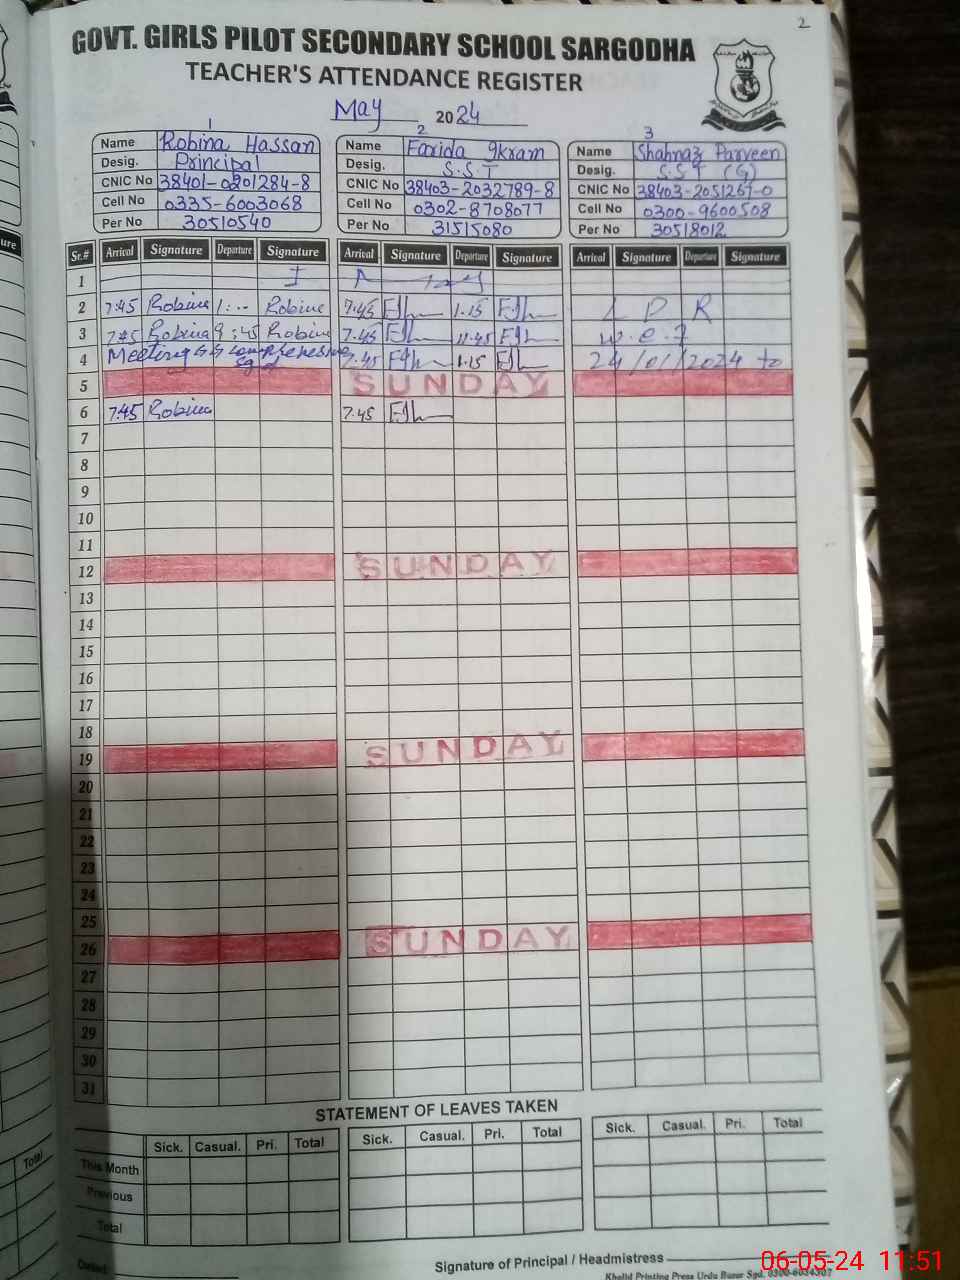 2
GOVT. GIRLS PILOT SECONDARY SCHOOL SARGODHA
TEACHER'S ATTENDANCE REGISTER
May 2024
1 2 3
Name Robina Hassan Name Farida Ikram Name Shahnaz Parveen
Desig. Principal Desig. S.S.T Desig. S.S T (G)
CNIC No 38401-0201284-8 CNIC No 38403-2032789-8 CNIC No 38403-2051267-0
Cell No 0335-6003068 Cell No 0302-8708077 Cell No 0300-9600508
Per No 30510540 Per No 31515080 Per No 30518012
Sr.# Arrival Signature Departure Signature Arrival Signature Departure Signature Arrival Signature Departure Signature
1
2 7:45 Robina 1: Robina 7:45 1.15 L P R
3 7:45 Robina 9:45 Robina 7.45 11.45 w.e.f
4 Meeting GG comprehensive 7.45 1.15 24/01/2024 to
sgd
5 SUNDAY
6 7:45 Robina 7.45
7
8
9
10
11
12 SUNDAY
13
14
15
16
17
18
19 SUNDAY
20
21
22
23
24
25
26 SUNDAY
27
28
29
30
31
STATEMENT OF LEAVES TAKEN
Sick. Casual. Pri. Total Sick. Casual. Pri. Total Sick. Casual. Pri. Total
This Month
Previous
Total
Dated:
Signature of Principal / Headmistress
Khalid Printing Press Urdu Bazar Sgd. 0300-6034507
06-05-24 11:51
ure
Total